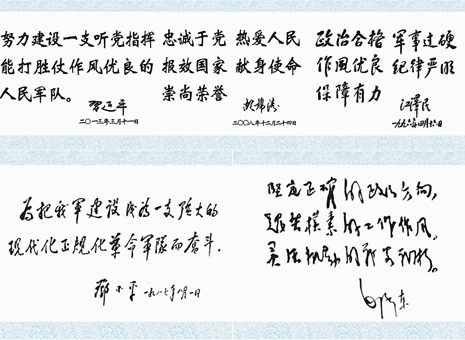 努力建设一支听党指挥
能打胜仗作风优良的
人民军队。
习近平
二〇一三年三月十一日
忠诚于党 热爱人民
报效国家 献身使命
崇尚荣誉
胡锦涛
二〇〇八年十二月二十四日
政治合格 军事过硬
作风优良 纪律严明
保障有力
江泽民
为把我军建设成为一支强大的
现代化正规化革命军队而奋斗.
邓小平
坚定正确的政治方向,
艰苦朴素的工作作风,
灵活机动的战略战术。
毛泽东